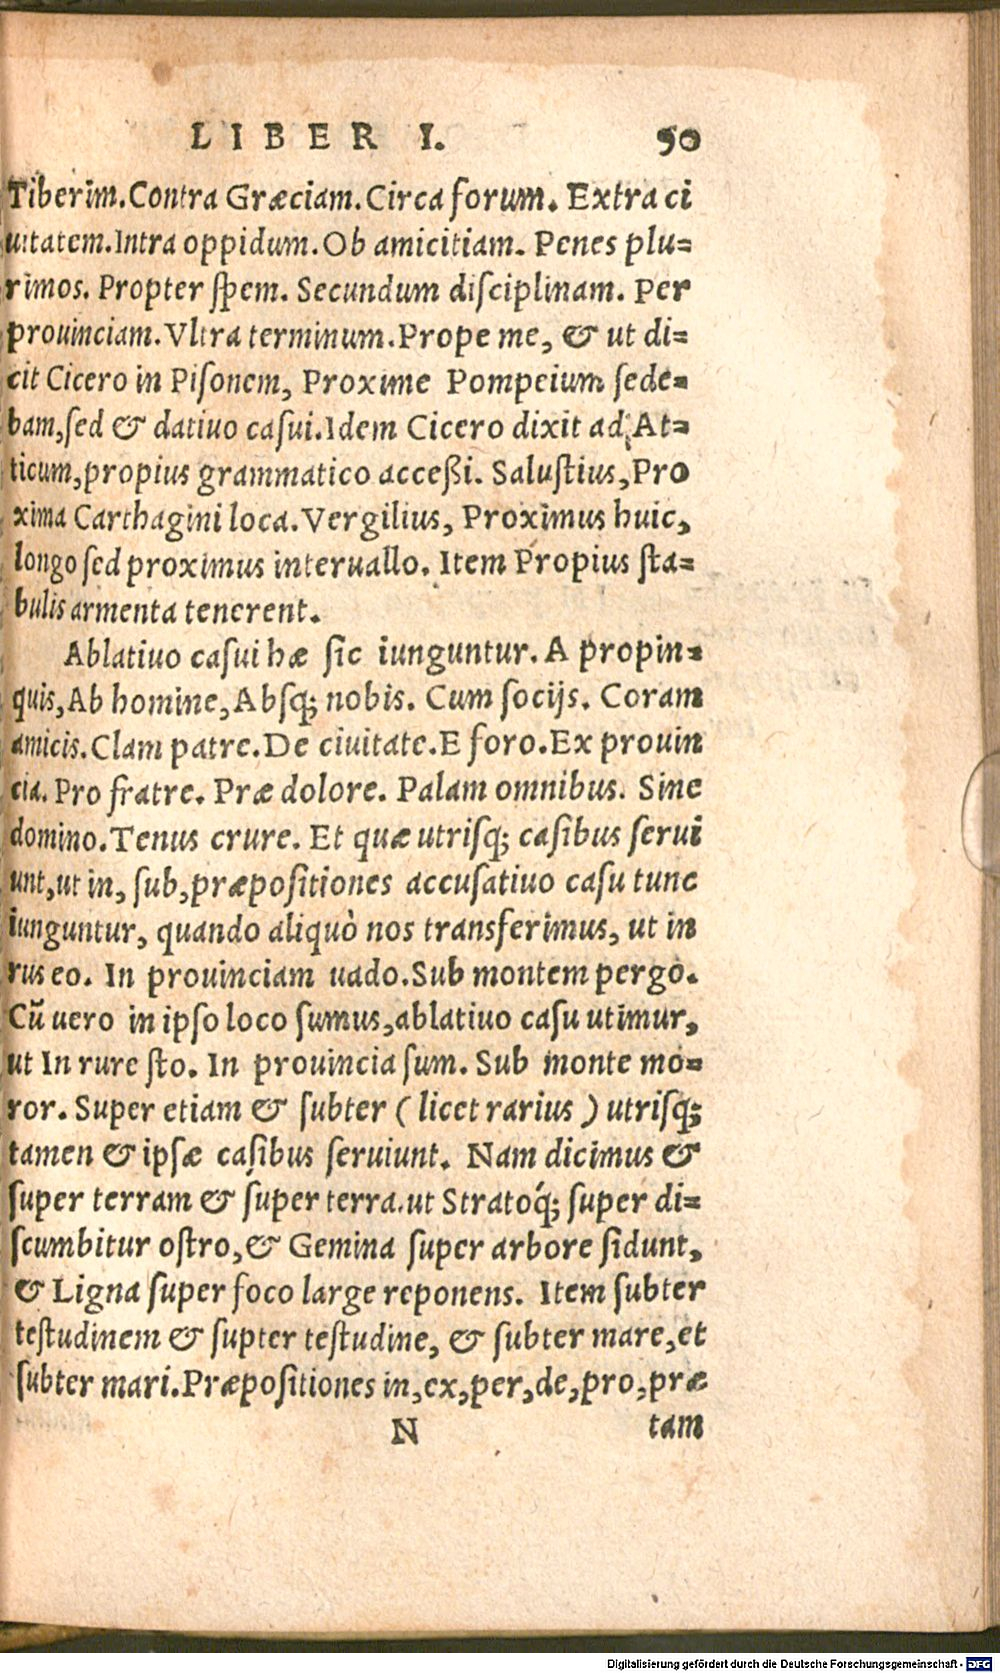 LIBER I. 90
Tiberim. Contra Græciam. Circa forum. Extra ci
uitatem. Intra oppidum. Ob amicitiam. Penes plu=
rimos. Propter ſpem. Secundum diſciplinam. Per
prouinciam. Vltra terminum. Prope me, & ut di=
cit Cicero in Piſonem, Proxime Pompeium ſede=
bam, ſed & datiuo caſui. Idem Cicero dixit ad At=
ticum, propius grammatico acceßi. Saluſtius, Pro
xima Carthagini loca. Vergilius, Proximus huic,
longo ſed proximus interuallo. Item Propius ſta=
bulis armenta tenerent.
Ablatiuo caſui hæ ſic iunguntur. A propin=
quis, Ab homine, Abſq; nobis. Cum ſocijs. Coram
amicis. Clam patre. De ciuitate. E foro. Ex prouin
cia. Pro fratre. Præ dolore. Palam omnibus. Sine
domino. Tenus crure. Et quæ utriſq; caſibus ſerui
unt, ut in, ſub, præpoſitiones accuſatiuo caſu tunc
iunguntur, quando aliquò nos transferimus, ut in
rus eo. In prouinciam uado. Sub montem pergo.
Cũ uero in ipſo loco ſumus, ablatiuo caſu utimur,
ut In rure ſto. In prouincia ſum. Sub monte mo=
ror. Super etiam & ſubter (licet rarius) utriſq;
tamen & ipſæ caſibus ſeruiunt. Nam dicimus &
ſuper terram & ſuper terra. ut Stratoq́; ſuper di=
ſcumbitur oſtro, & Gemina ſuper arbore ſidunt,
& Ligna ſuper foco large reponens. Item ſubter
teſtudinem & ſupter teſtudine, & ſubter mare, et
ſubter mari. Præpoſitiones in, ex, per, de, pro, præ
N tam
Digitalisierung gefördert durch die Deutsche Forschungsgemeinschaft - DFG